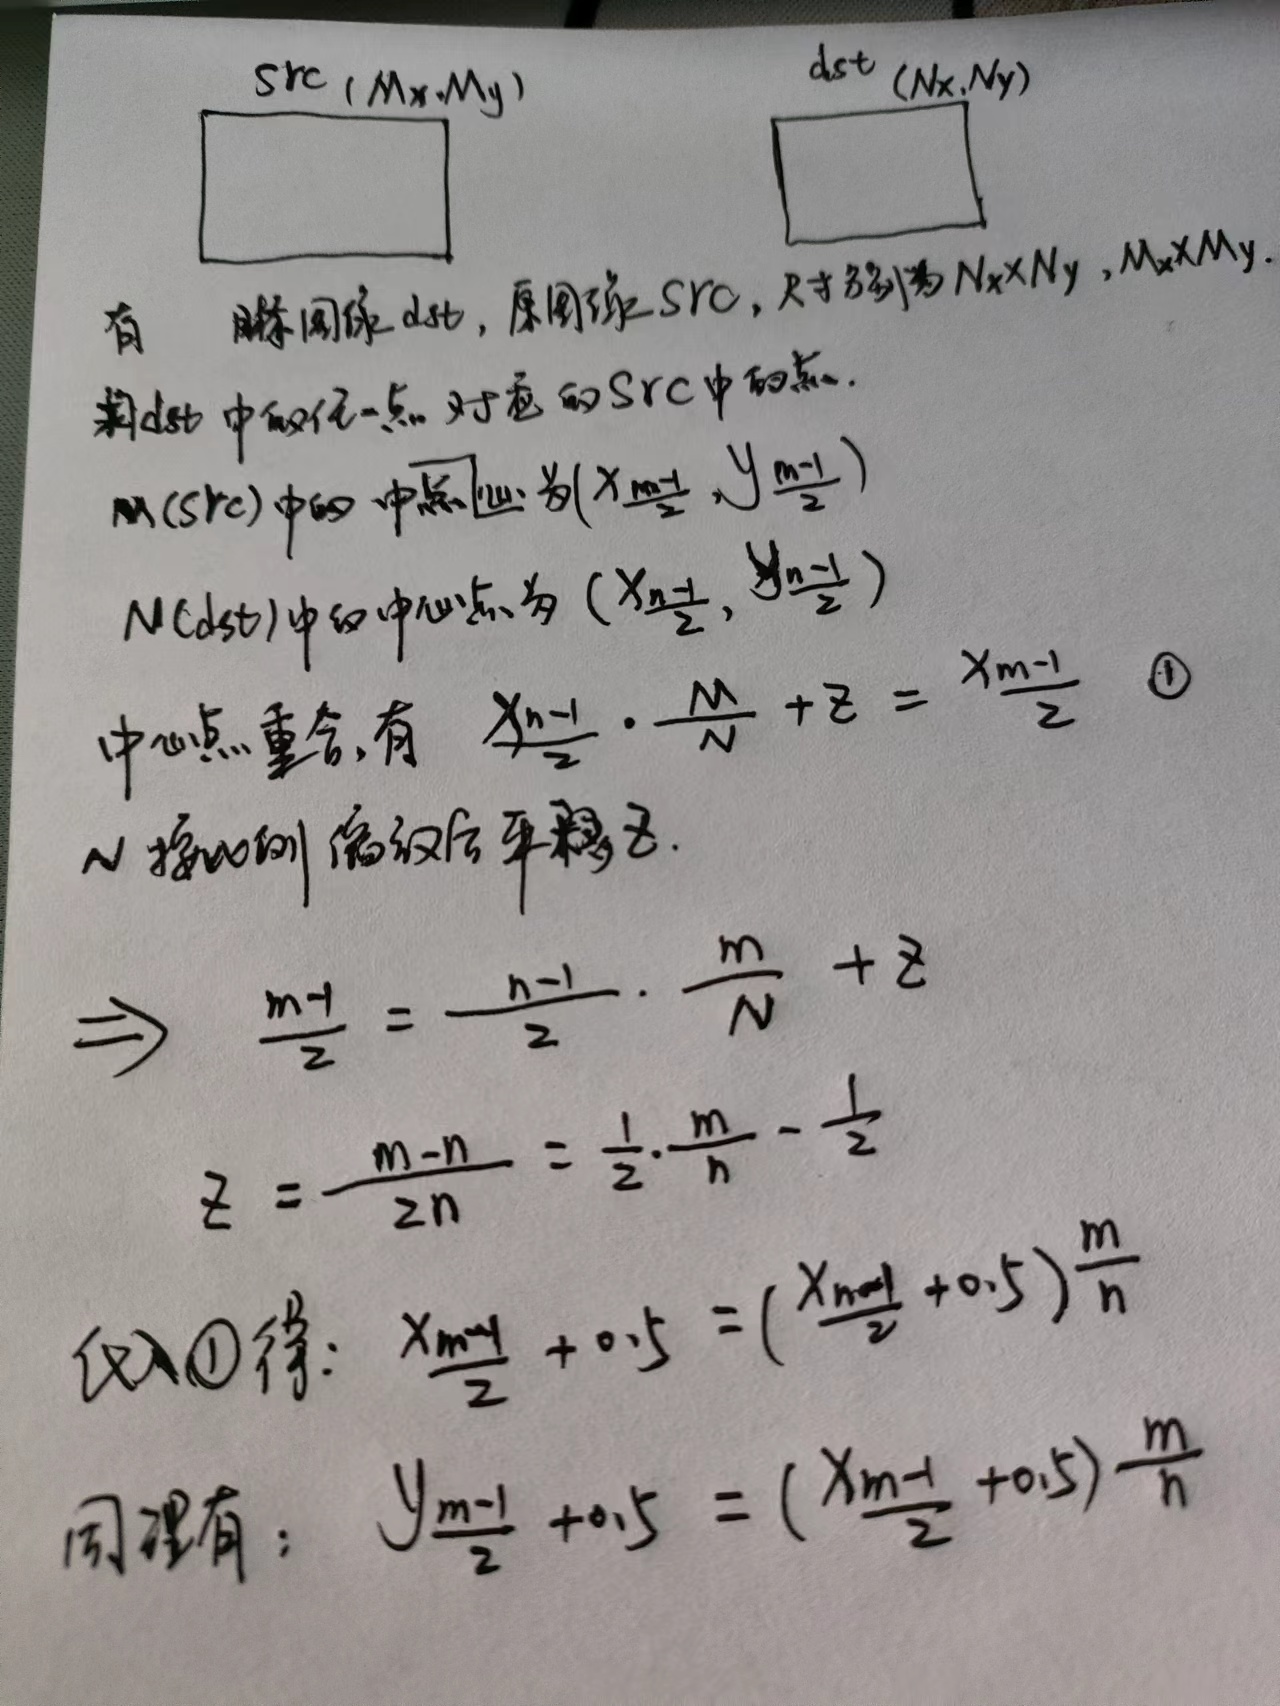 src (Mx.My)
dst (Nx.Ny)
有 目标图像dst, 原图像src, 尺寸分别为Nx×Ny, Mx×My.
求dst中的任一点对应的src中的点.
M(src)中的中点心为(x_{\frac{m-1}{2}}, y_{\frac{m-1}{2}})
N(dst)中的中心点为(x_{\frac{n-1}{2}}, y_{\frac{n-1}{2}})
中心点重合,有 x_{\frac{n-1}{2}} · \frac{M}{N} + Z = x_{\frac{m-1}{2}} ①
N按比例缩放后平移Z.
⇒ \frac{m-1}{2} = \frac{n-1}{2} · \frac{m}{N} + Z
Z = \frac{m-n}{2n} = \frac{1}{2} · \frac{m}{n} - \frac{1}{2}
代入①得: x_{\frac{m-1}{2}} + 0.5 = (x_{\frac{n-1}{2}} + 0.5) \frac{m}{n}
同理有: y_{\frac{m-1}{2}} + 0.5 = (x_{\frac{m-1}{2}} + 0.5) \frac{m}{n}